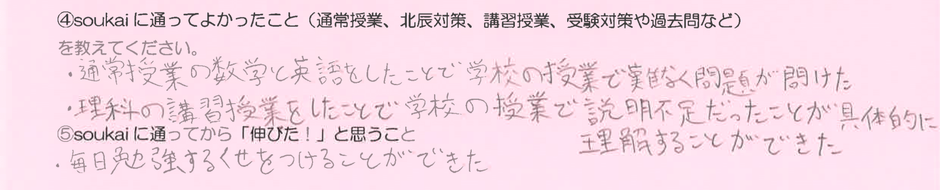 ④soukai に通ってよかったこと（通常授業、北辰対策、講習授業、受験対策や過去問など）
を教えてください。
・通常授業の数学と英語をしたことで学校の授業で難なく問題が問けた
・理科の講習授業をしたことで学校の授業で説明不足だったことが具体的に
理解することができた
⑤soukai に通ってから「伸びた！」と思うこと
・毎日勉強するくせをつけることができた